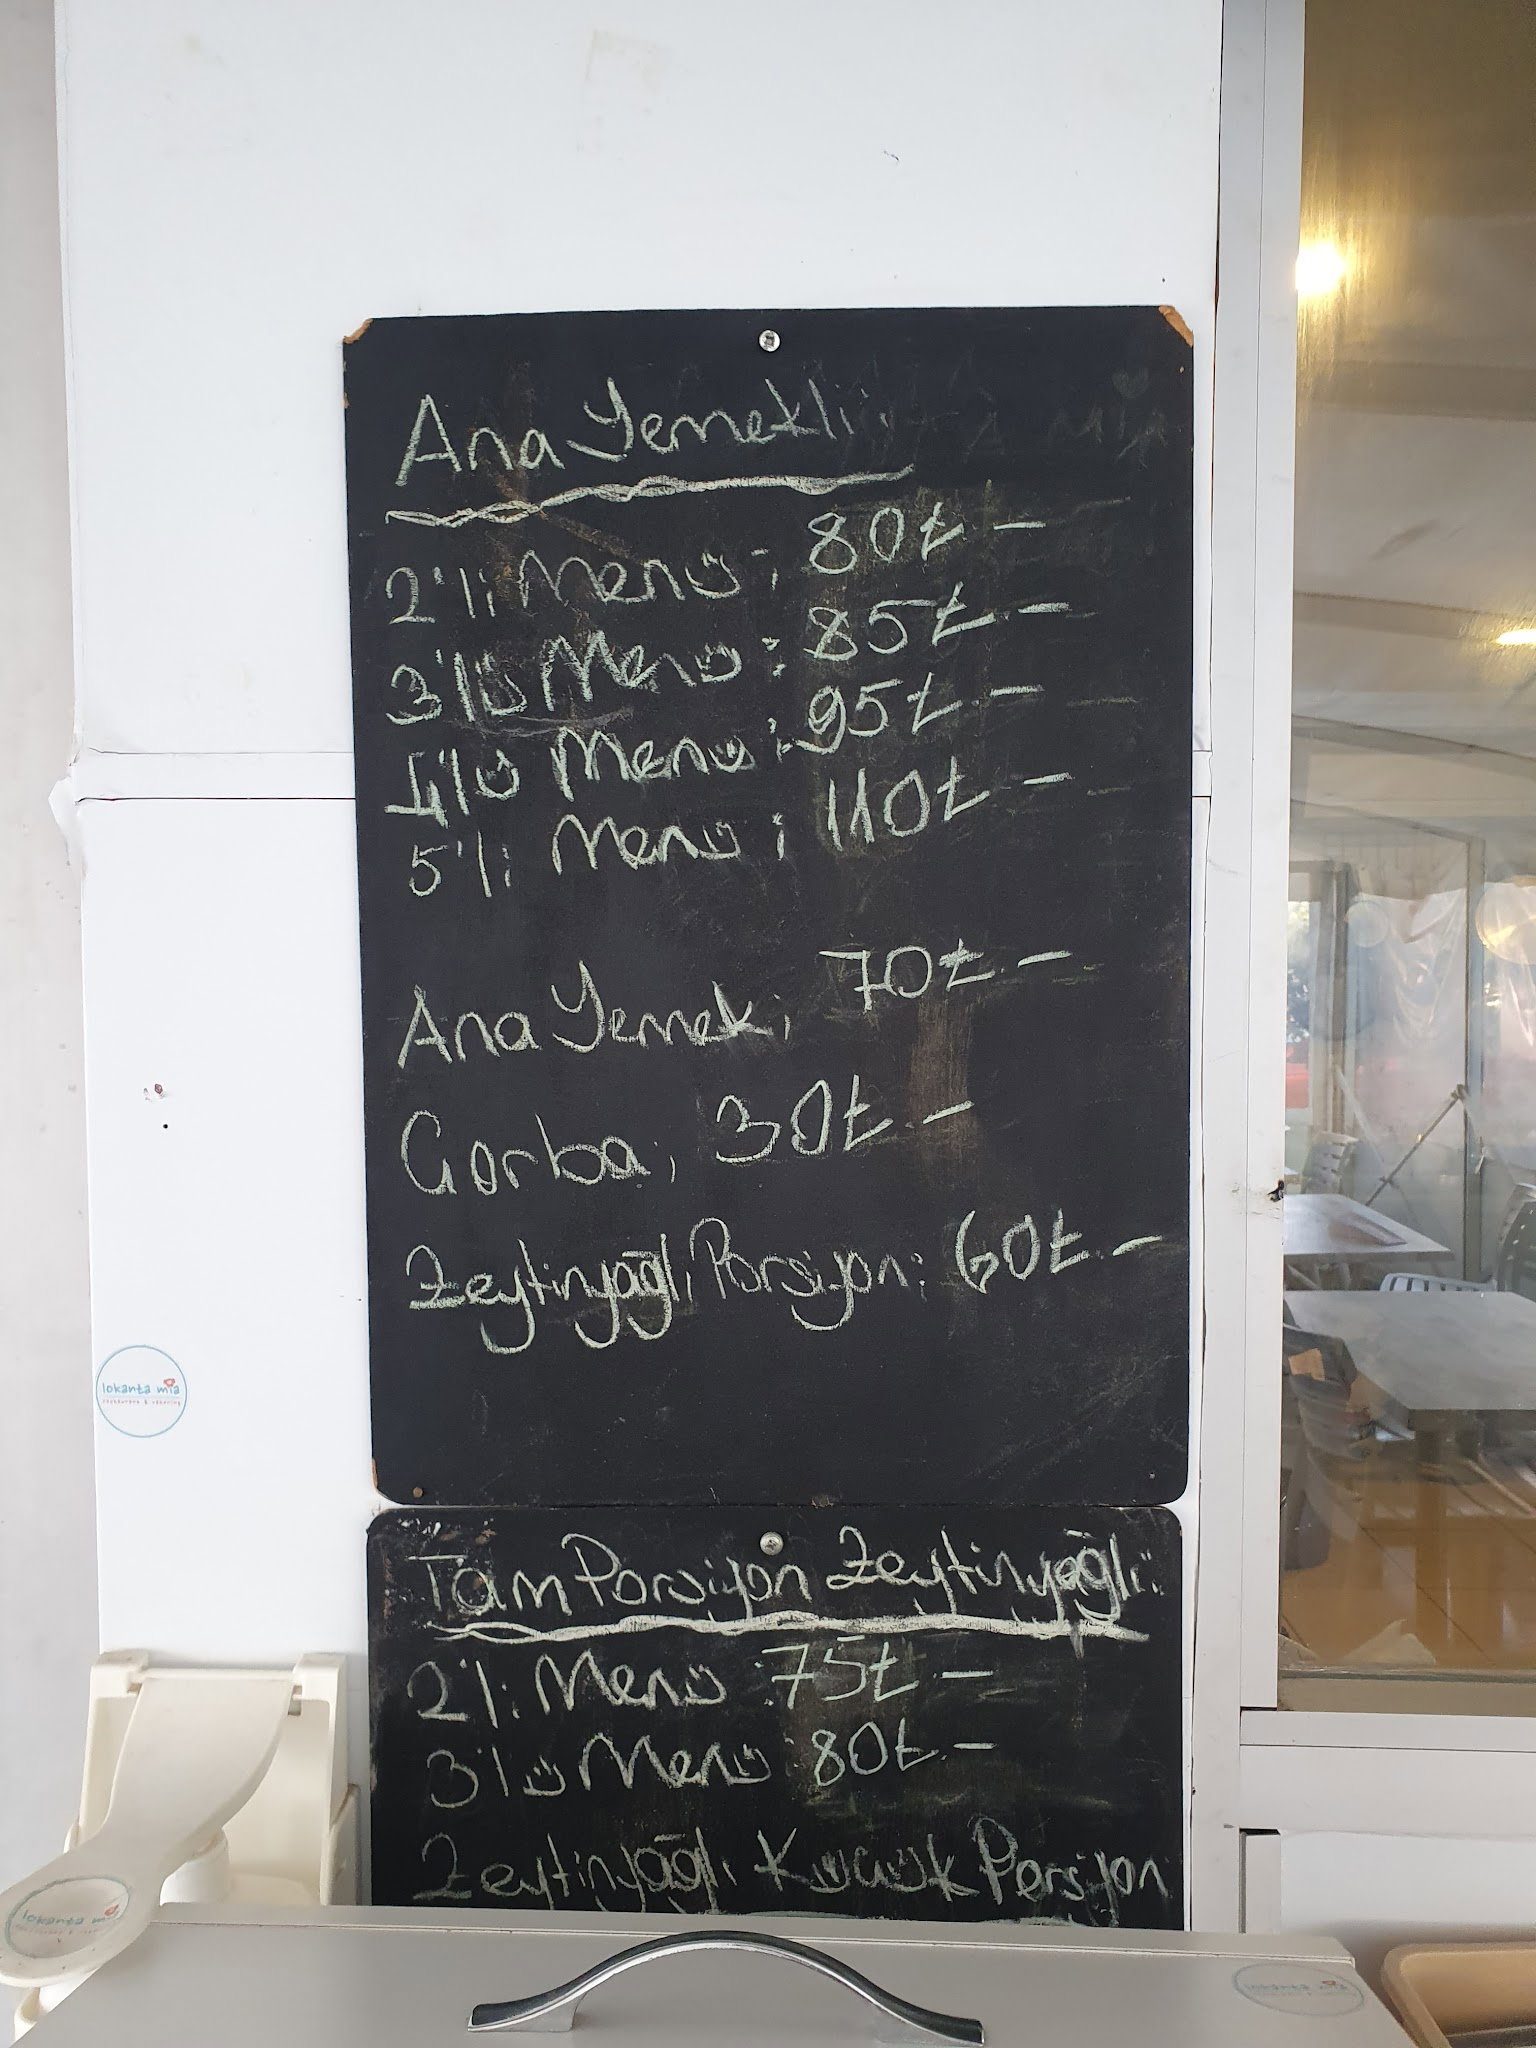 Ana Yemekli:
2'li Menü: 80₺-
3'lü Menü: 85₺-
4'lü Menü: 95₺-
5'li Menü: 110₺-
Ana Yemek: 70₺-
Çorba: 30₺-
Zeytinyağlı Porsiyon: 60₺-
lokanta mia
Tam Porsiyon Zeytinyağlı:
2'li Menü: 75₺-
3'lü Menü: 80₺-
Zeytinyağlı Küçük Porsiyon
lokanta mia
lokanta mia